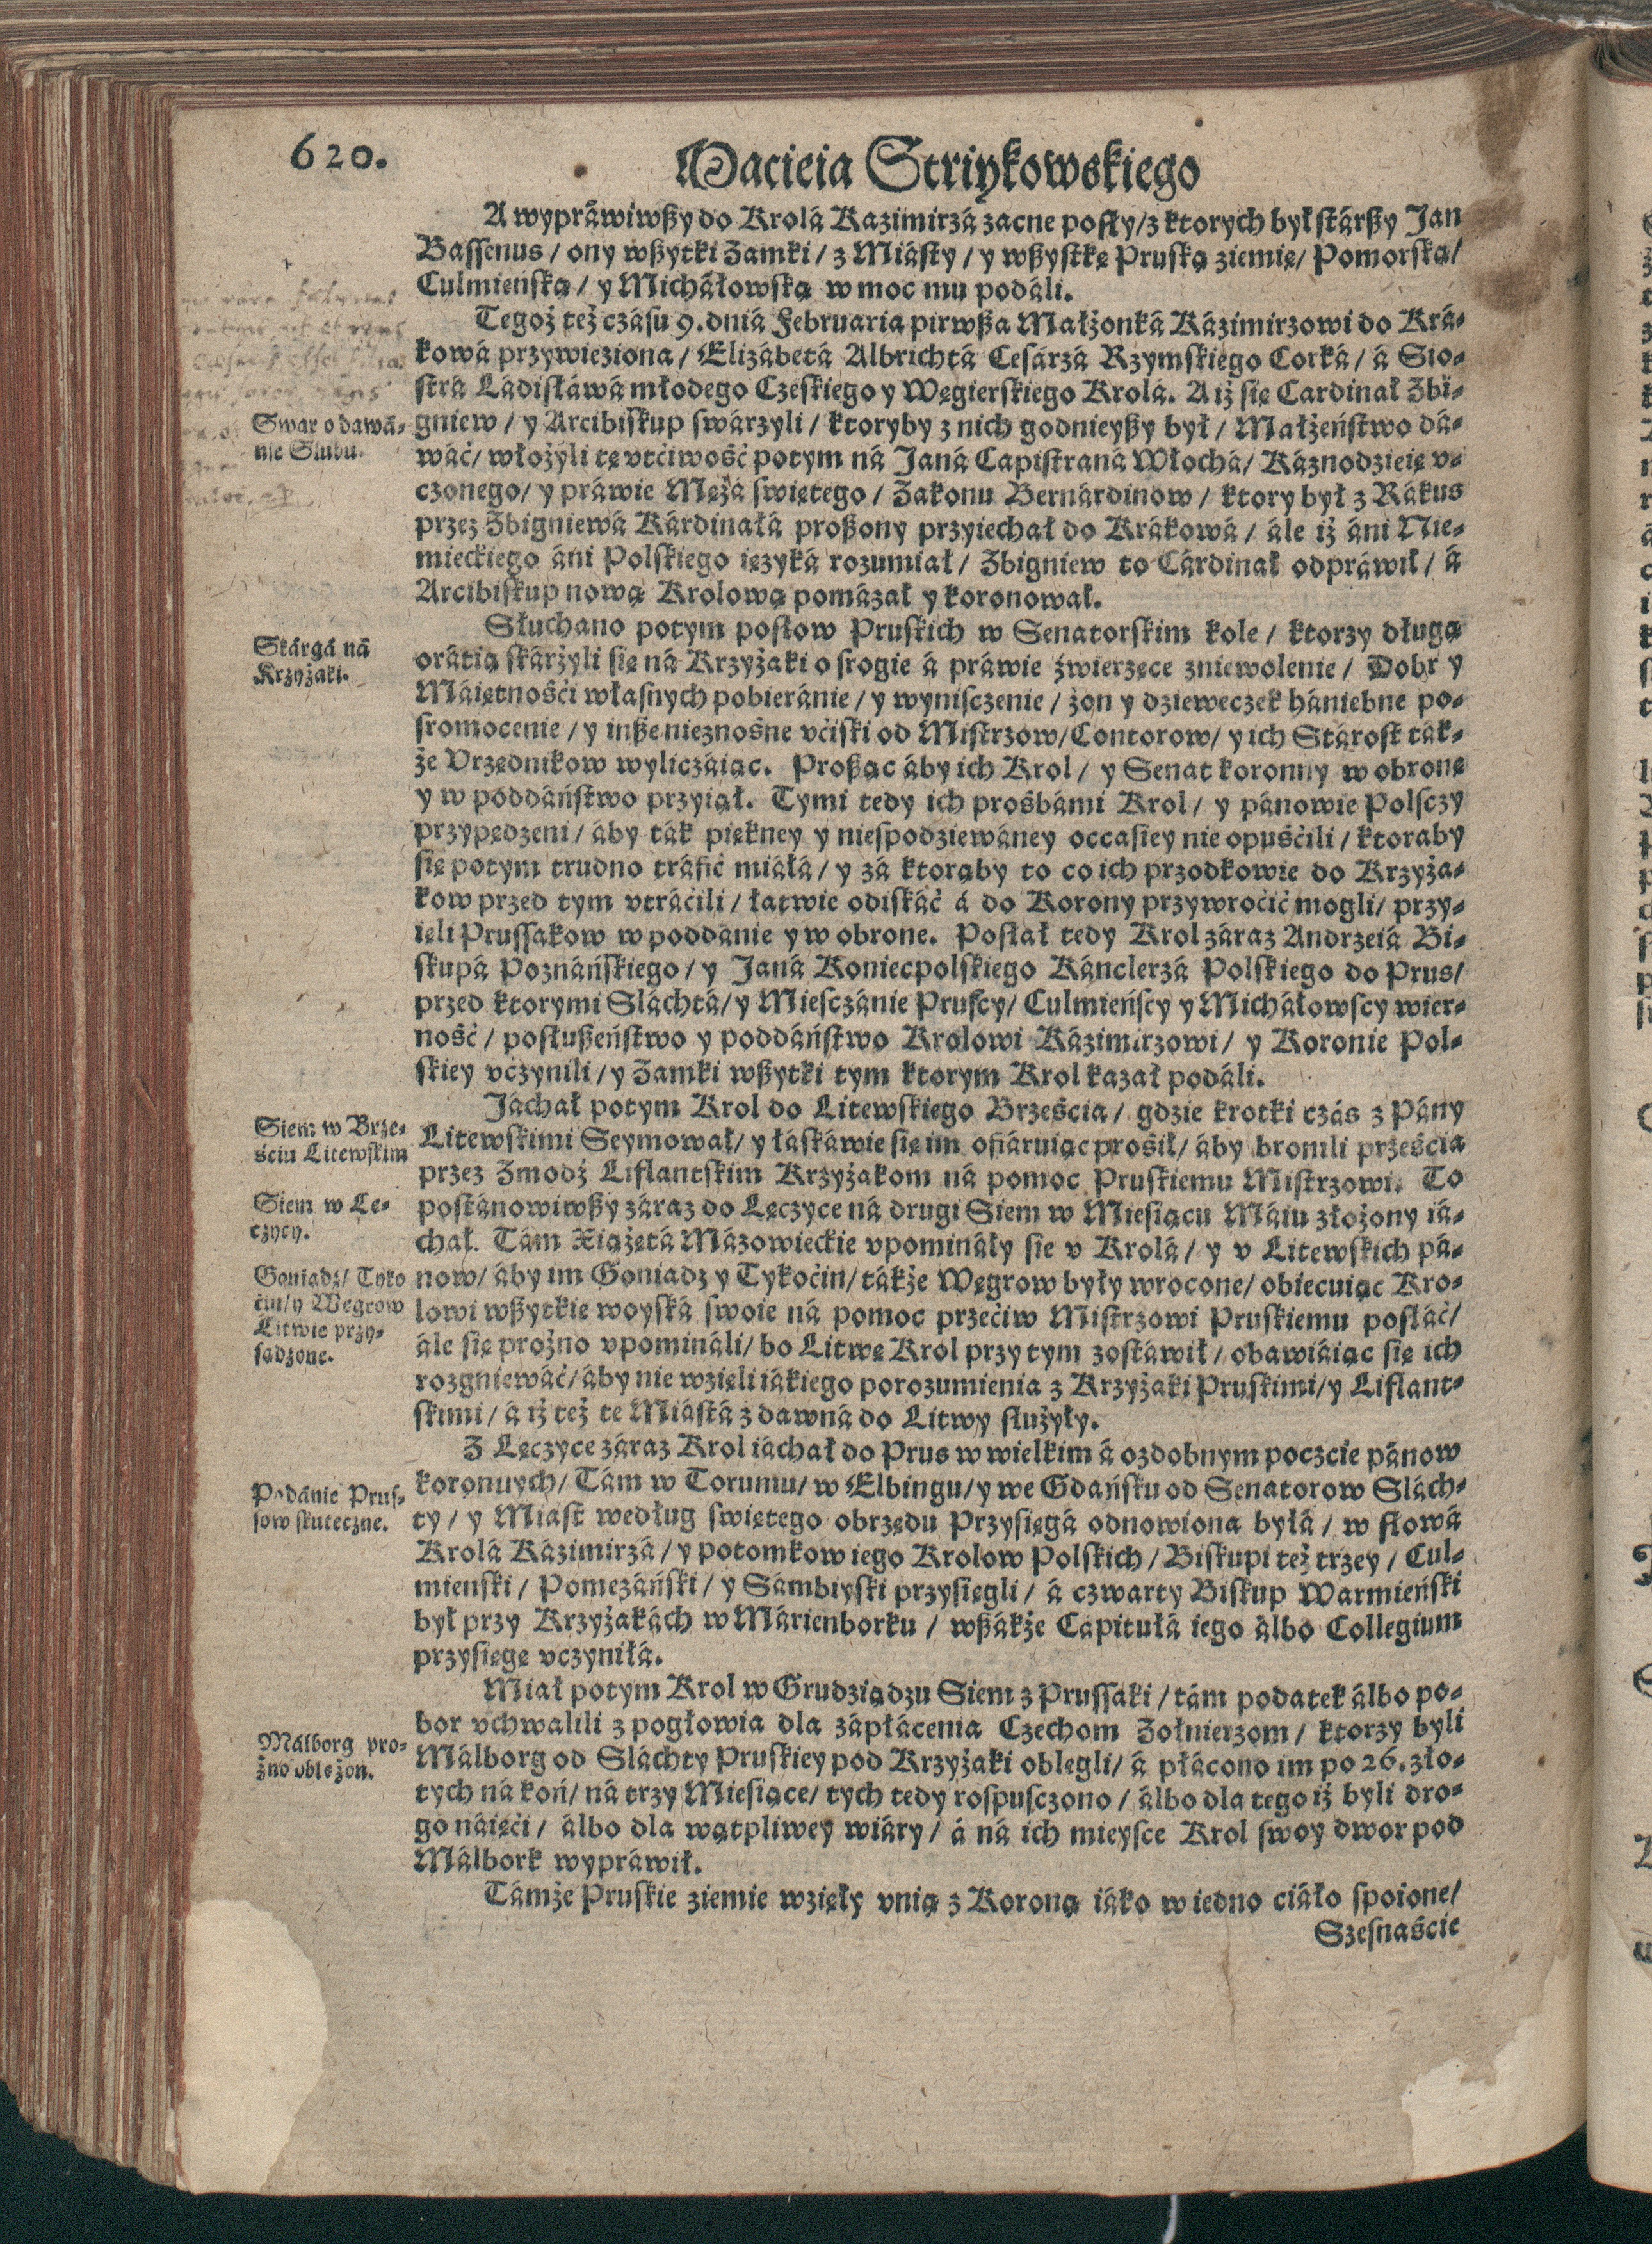 620.
Macieia Striykowskiego
A wypráwiwßy do Krolá Kazimirzá zacne posły/z ktorych był stárßy Jan
Bassenus / ony wßytki Zamki / z Miásty / y wßystkę Pruską ziemię/ Pomorską/
Culmieńską / y Micháłowską w moc mu podáli.
Tegoż też czásu 9. dniá Februaria pirwßa Małżonká Kázimirzowi do Krá-
kowá przywieziona / Elizábetá Albrichtá Cesárzá Rzymskiego Corká / á Sio-
strá Ládisłáwá młodego Czeskiego y Węgierskiego Krolá. A iż się Cardinał Zbi-
gniew / y Arcibiskup swárzyli / ktoryby z nich godnieyßy był / Małżeństwo dá-
wáć/ włożyli tę vtćiwość potym ná Janá Capistraná Włochá/ Káznodzieię v-
czonego/ y práwie Mężá świętego / Zakonu Bernárdinow / ktory był z Rákus
przez Zbigniewá Kárdinałá proßony przyiechał do Krákowá / ále iż áni Nie-
mieckiego áni Polskiego ięzyká rozumiał / Zbigniew to Cárdinał odpráwił / á
Arcibiskup nową Krolową pomázał y koronował.
Słuchano potym posłow Pruskich w Senatorskim kole / ktorzy długą
orátią skárżyli się ná Krzyżaki o srogie á práwie źwierzęce zniewolenie / Dobr y
Máiętnośći własnych pobieránie / y wynisczenie / żon y dzieweczek hániebne po-
sromocenie / y inße nieznośne vćiski od Mistrzow/Contorow/ y ich Stárost ták-
że Vrzędnikow wyliczáiąc. Proßąc áby ich Krol / y Senat koronny w obronę
y w poddáństwo przyiął. Tymi tedy ich prośbámi Krol / y pánowie Polsczy
przypędzeni / áby ták piękney y niespodziewáney occasiey nie opuśćili / ktoraby
się potym trudno tráfić miáłá / y zá ktorąby to co ich przodkowie do Krzyża-
kow przed tym vtráćili / łatwie odiskáć á do Korony przywroćić mogli/ przy-
ięli Prussakow w poddánie y w obronę. Posłał tedy Krol záraz Andrzeiá Bi-
skupá Poznáńskiego / y Janá Koniecpolskiego Kánclerzá Polskiego do Prus/
przed ktorymi Sláchtá/ y Miesczánie Pruscy/ Culmieńscy y Micháłowscy wier-
ność / posłußeństwo y poddáństwo Krolowi Kázimirzowi / y Koronie Pol-
skiey vczynili / y Zamki wßytki tym ktorym Krol kazał podáli.
Jáchał potym Krol do Litewskiego Brześcia / gdzie krotki czás z Pány
Litewskimi Seymował/ y łáskáwie się im ofiáruiąc prosił/ áby bronili prześcia
przez Zmodź Liflantskim Krzyżakom ná pomoc Pruskiemu Mistrzowi. To
postánowiwßy záraz do Lęczyce ná drugi Siem w Miesiącu Máiu złożony iá-
chał. Tám Xiążętá Mázowieckie vpomináły sie v Krolá / y v Litewskich pá-
now/ áby im Goniadz y Tykoćin/ tákże Węgrow były wrocone/ obiecuiąc Kro-
lowi wßytkie woyská swoie ná pomoc przećiw Mistrzowi Pruskiemu posłáć/
ále się prożno vpomináli/ bo Litwę Krol przy tym zostáwił / obawiáiąc się ich
rozgniewáć/ áby nie wzięli iákiego porozumienia z Krzyżaki Pruskimi/y Liflant-
skimi / á iż też te Miástá z dawná do Litwy służyły.
Z Lęczyce záraz Krol iáchał do Prus w wielkim á ozdobnym poczcie pánow
koronnych/ Tám w Toruniu/ w Elbingu/ y we Gdańsku od Senatorow Slách-
ty / y Miast według swiętego obrzędu Przysięgá odnowiona byłá / w słowá
Krolá Kázimirzá / y potomkow iego Krolow Polskich / Biskupi też trzey / Cul-
mienski / Pomezáński / y Sámbiyski przysięgli / á czwarty Biskup Warmieński
był przy Krzyżakách w Márienborku / wßákże Capitułá iego álbo Collegium
przysięgę vczyniłá.
Miał potym Krol w Grudziądzu Siem z Prussaki / tám podatek álbo po-
bor vchwalili z pogłowia dla zápłácenia Czechom Zołnierzom / ktorzy byli
Málborg od Sláchty Pruskiey pod Krzyżaki oblegli/ á płácono im po 26. zło-
tych ná koń/ ná trzy Miesiące/ tych tedy rospusczono / álbo dla tego iż byli dro-
go náięći / álbo dla wątpliwey wiáry / á ná ich mieysce Krol swoy dwor pod
Málbork wypráwił.
Támże Pruskie ziemie wzięły vnią z Koroną iáko w iedno ciáło spoione/
Szesnaście
Swar o dawá-
nie Slubu.
Skárgá ná
Krzyżaki.
Siem w Brze-
ściu Litewskim
Siem w Lę-
czycy.
Goniadz/ Tyko
ćin/y Węgrow
Litwie przy-
sądzone.
Podánie Prus-
sow skuteczne.
Málborg pro-
żno oblężon.